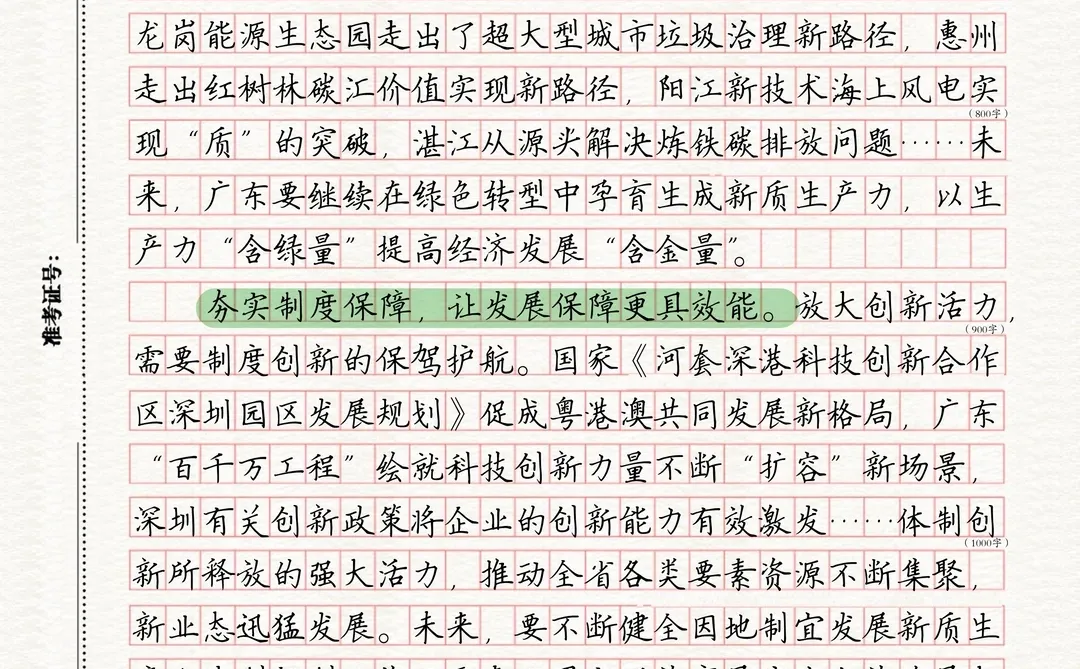 龙岗能源生态园走出了超大型城市垃圾治理新路径，惠州
走出红树林碳汇价值实现新路径，阳江新技术海上风电实
(800字)
现“质”的突破，湛江从源头解决炼铁碳排放问题……未
来，广东要继续在绿色转型中孕育生成新质生产力，以生
产力“含绿量”提高经济发展“含金量”。
准考证号：
夯实制度保障，让发展保障更具效能。放大创新活力，
(900字)
需要制度创新的保驾护航。国家《河套深港科技创新合作
区深圳园区发展规划》促成粤港澳共同发展新格局，广东
“百千万工程”绘就科技创新力量不断“扩容”新场景，
深圳有关创新政策将企业的创新能力有效激发……体制创
(1000字)
新所释放的强大活力，推动全省各类要素资源不断集聚，
新业态迅猛发展。未来，要不断健全因地制宜发展新质生